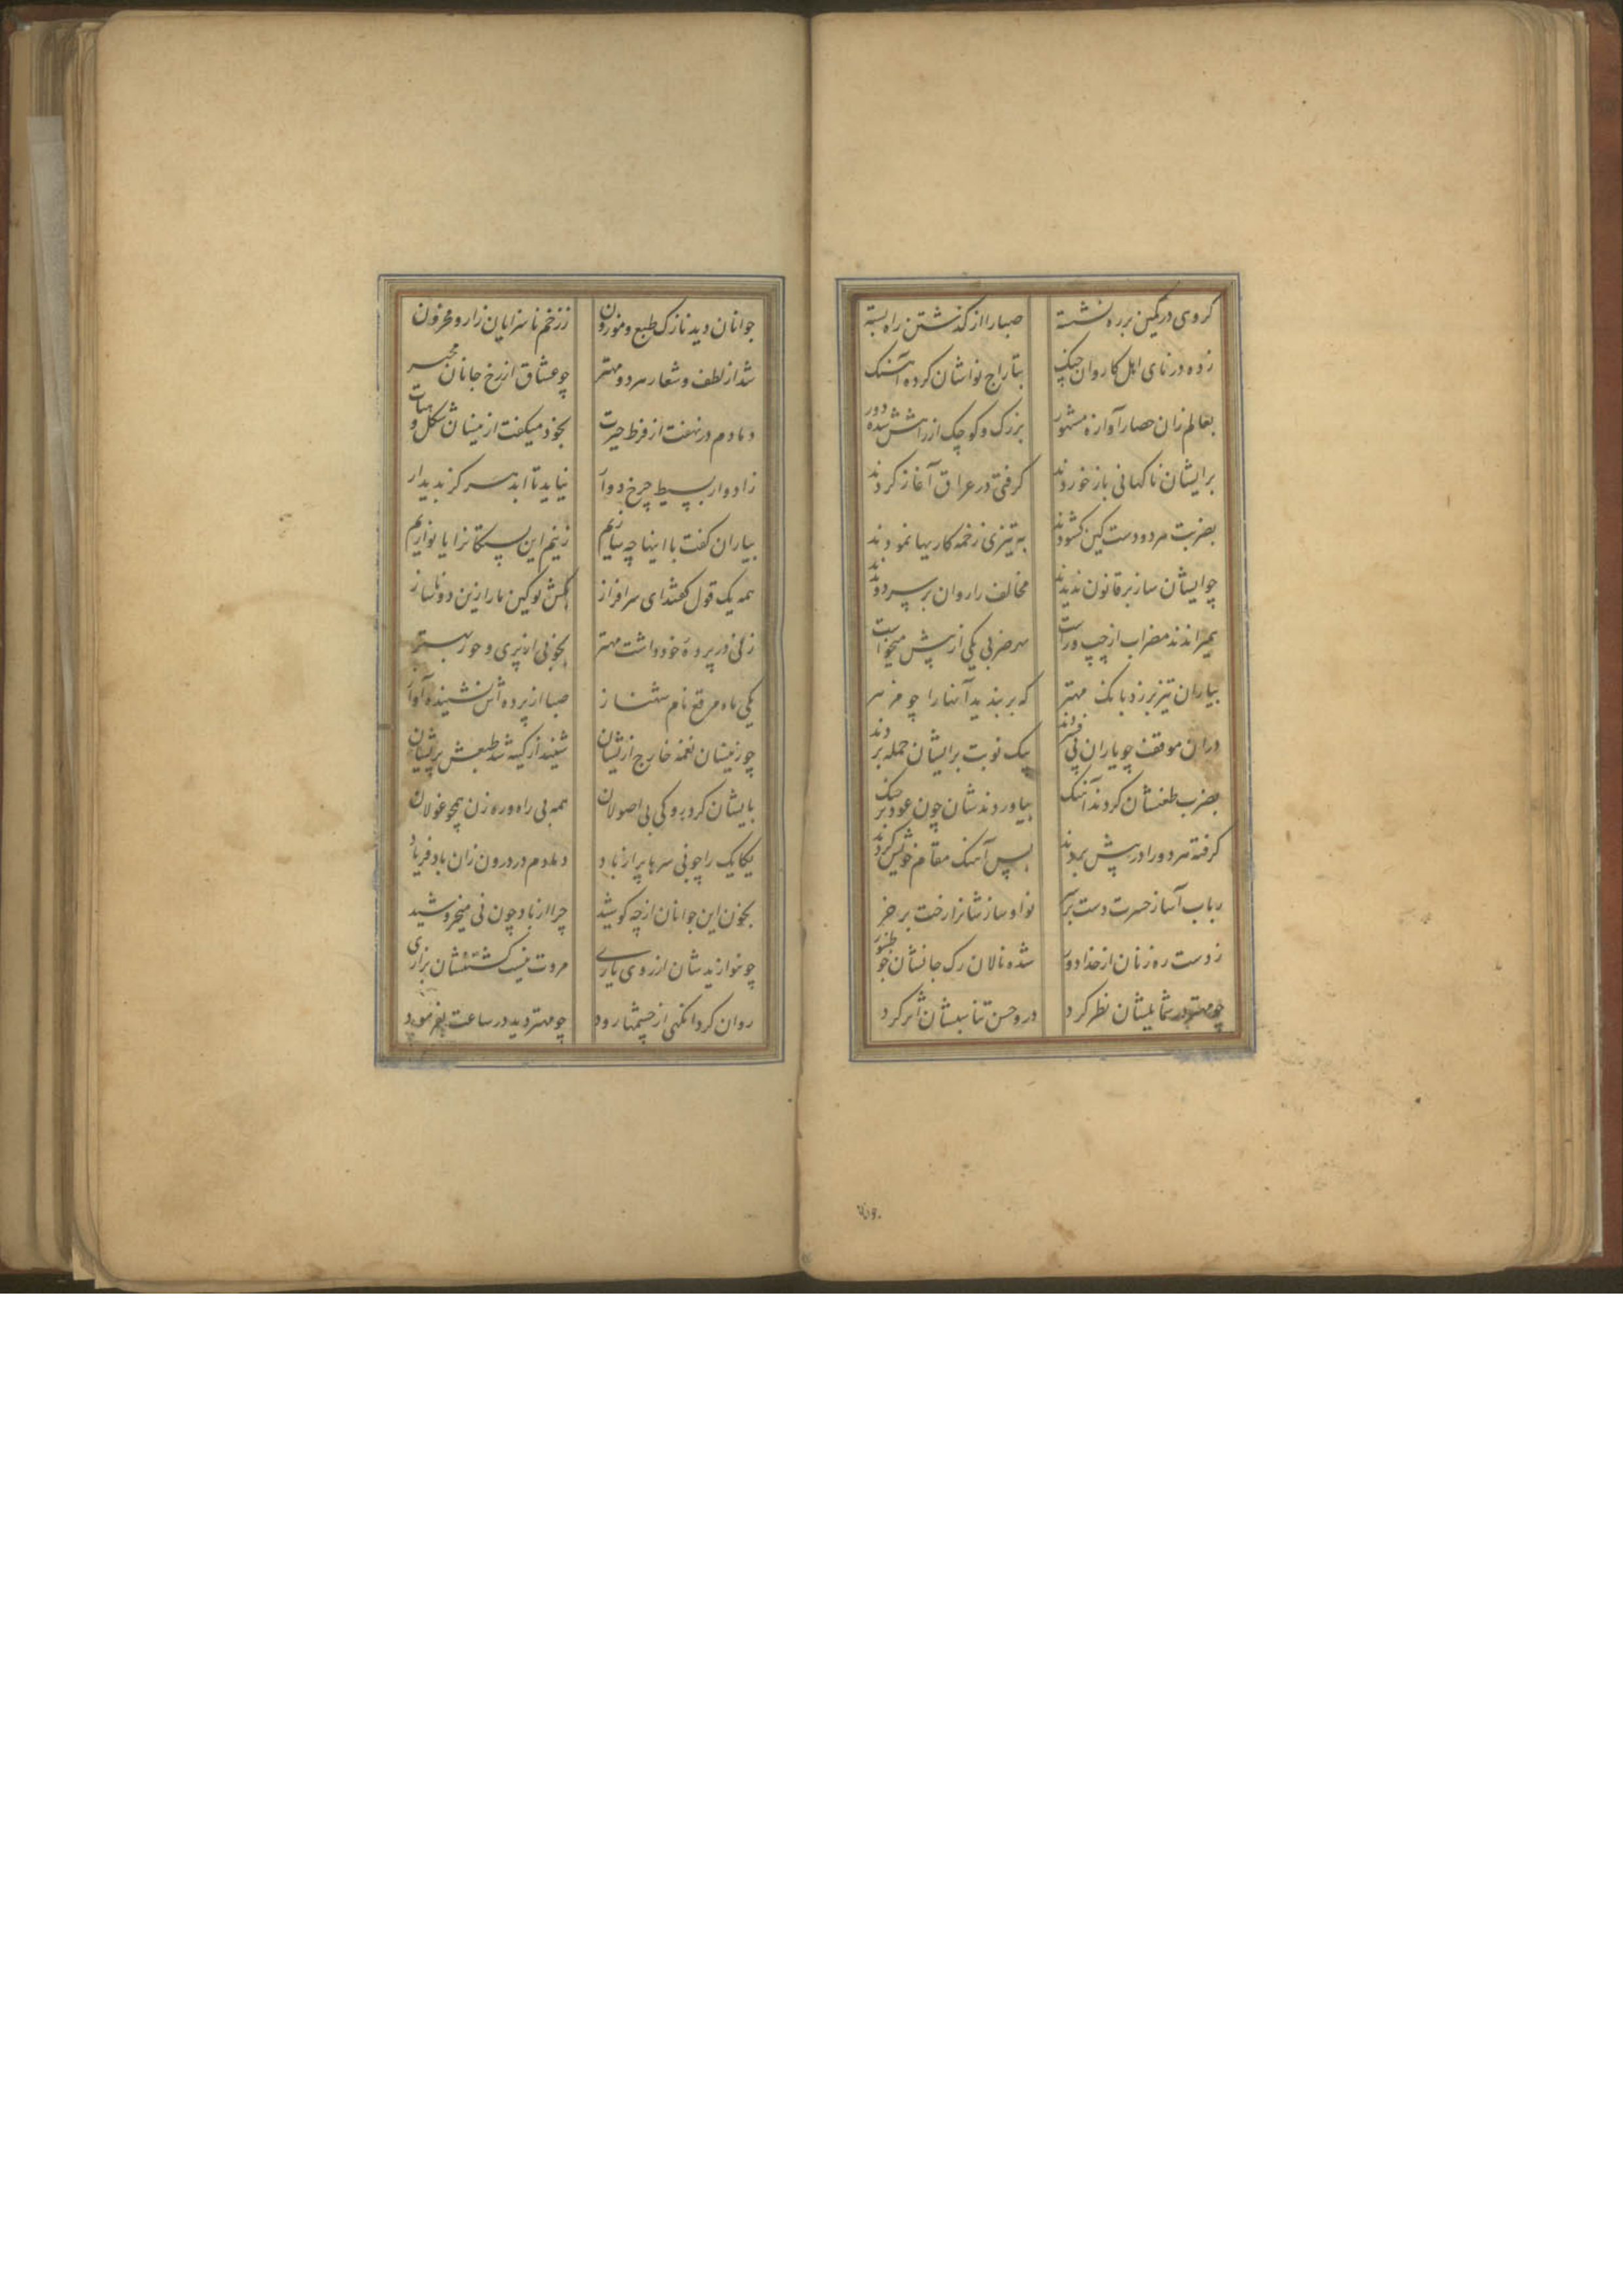 گروهی در کمین بر ره نشسته صبا را از گذشتن راه بسته
زده در نای اهل کاروان چنگ بتاراج نواشان کرده آهنگ
بعالم زان حصار آوازه مشهور بزرک و کوچک از راهش شده دور
برایشان ناکهانی باز خوردند کرفتی در عراق آغاز کردند
بضربت هر دو دست کین کشودند به تیزی زخمه کاریها نمودند
چو ایشان ساز بر قانون ندیدند مخالف را روان بر سر دویدند
همیراندند مضراب از چپ و راست بهر ضربی یکی از پیش میخواست
بیاران تیز بر زد بانک مهتر که بربندید آنها را چو مزمر
دران موقف چو یاران پی فشردند بیک نوبت برایشان حمله بردند
بضرب طعنشان کردند آهنک بیاوردندشان چون عود بر چنک
کرفته هر دو را در پیش بردند پس آهنک مقام خویش کردند
رباب آسا ز حسرت دست بر سر نوا و سازشانرا رخت بر خر
ز دست ره زنان از خدا دور شده نالان رک جانشان چو طنبور
چو مهتر در شمایلشان نظر کرد درو حسن تناسبشان اثر کرد
جوانان دید نازک طبع و موزون ز زخم ناسزایان زار و محزون
شد از لطف و شعار هر دو مهتر چو عشاق از رخ جانان محیر
دمادم در نهفت از فرط حیرت بخود میکفت ازینسان شکل و هیات
ز ادوار بسیط چرخ دوار نیاید تا ابد هرکز بدیدار
بیاران کفت با اینها چه سازیم زنیم این بستکانرا یا نوازیم
همه یک قول کفتند ای سرافراز بکش نوکین ما را زین دو ناساز
زنی در پرده خود داشت مهتر بخوبی از پری و حور بهتر
یکی ماه مرقع نام شهناز صبا از پرده اش نشنیده آواز
چو زینسان نغمه خارج ازیشان شنید از کینه شد طبعش پریشان
بایشان کرد رو کی بی اصولان همه بی راه و ره زن همچو غولان
یکایک را چو نی سرها پر از باد دمادم در درون زان باد فریاد
بخون این جوانان از چه کوشید چرا از باد چون نی میخروشید
چو نوازیدشان از روی یاری مروت نیست کشتنشان بزاری
روان کرد انکهی از چشمها رود چو مهتر دید در ساعت بفرمود